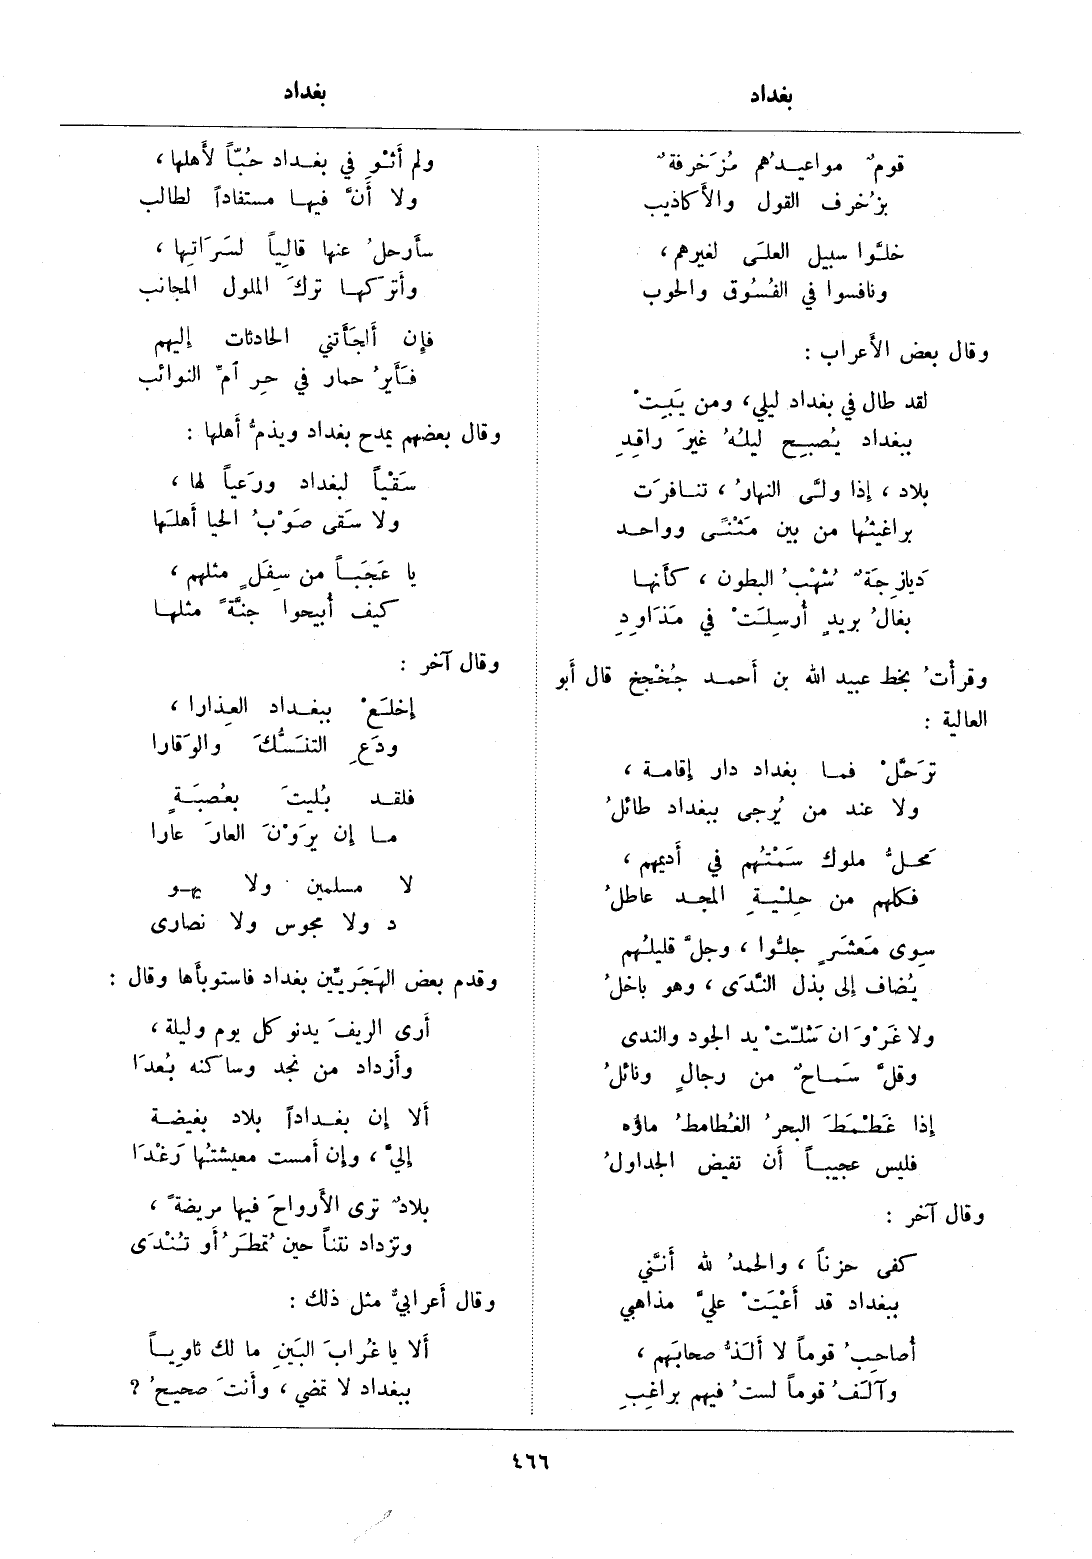 بغداد
بغداد
قومٌ مواعيدُهم مُزَخرفةٌ
بزُخرف القول والأَكاذيب
خلَّوا سبيل العلَى لغيرهم،
ونافسوا في الفُسُوق والحوب
وقال بعض الأَعراب :
لقد طال في بغداد ليلي، ومن يَبِتْ
ببغداد يُصبِح ليلُهُ غيرَ راقِدِ
بلاد، إذا ولَّى النهارُ، تنافرَت
براغيثُها من بين مَثْنًى وواحد
دَيازِجَةٌ شُهْبُ البطون، كأَنها
بغالُ بريدٍ أُرسِلَتْ في مَذَاوِدِ
وقرأْتُ بخط عبيد الله بن أَحمد جُخْجُخ قال أَبو
العالية :
تَرَحَّلْ فما بغداد دار إقامة،
ولا عند من يُرجى ببغداد طائلُ
مَحلُّ ملوك سَمْتُهم في أَديمهم،
فكلهم من حِلْيَةِ المجد عاطلُ
سِوى مَعشَرٍ جلُّوا، وجلَّ قليلُهم
يُضاف إلى بذل النَّدَى، وهو باخلُ
ولا غَرْوَ ان شَلّتْ يد الجود والندى
وقلَّ سَماحٌ من رجالٍ ونائلُ
إذا غَطْمَطَ البحرُ الغُطامطُ ماؤه
فليس عجيباً أن تفيض الجداولُ
وقال آخر :
كفى حزناً، والحمدُ لله أَنَّني
ببغداد قد أَعْيَتْ عليَّ مذاهبي
أُصاحِبُ قوماً لا أَلذُّ صحابَهم،
وآلَفُ قوماً لستُ فيهم براغِبِ
ولم أَثْوِ في بغداد حُبّاً لأَهلها،
ولا أَنَّ فيها مستفاداً لطالب
سأَرحلُ عنها قالِياً لسَرَاتِها،
وأَتركها تركَ الملول المجانب
فإن أَلجأَتني الحادثات إليهم
فأَيرُ حمار في حِرِ آمّ النوائب
وقال بعضهم يمدح بغداد ويذمُّ أهلها :
سَقْياً لبغداد ورَعياً لها،
ولا سَقى صَوْبُ الحيا أَهلَها
يا عَجَباً من سِفَلٍ مثلهم،
كيف أُبيحوا جنَّةً مثلها
وقال آخر :
إخلَعْ ببغداد العِذارا،
ودَعِ التنسُّكَ والوَقارا
فلقد بُليتَ بعُصبَةٍ
ما إن يرَوْنَ العارَ عارا
لا مسلمين ولا يهو
د ولا مجوس ولا نصارى
وقدم بعض الهَجَريّين بغداد فاستوبأَها وقال :
أَرى الريفَ يدنو كل يوم وليلة،
وأَزداد من نجد وساكنه بُعدَا
أَلا إن بغداداً بلاد بغيضة
إليَّ، وإن أَمست معيشتُها رَغْدَا
بلادٌ ترى الأَرواحَ فيها مريضةً،
وتزداد نتناً حين تُمطَرُ أَو تُنْدَى
وقال أَعرابيٌّ مثل ذلك :
ألا يا غُرابَ البَينِ ما لك ثاوِياً
ببغداد لا تمضي، وأَنتَ صحيحُ ؟
٤٦٦